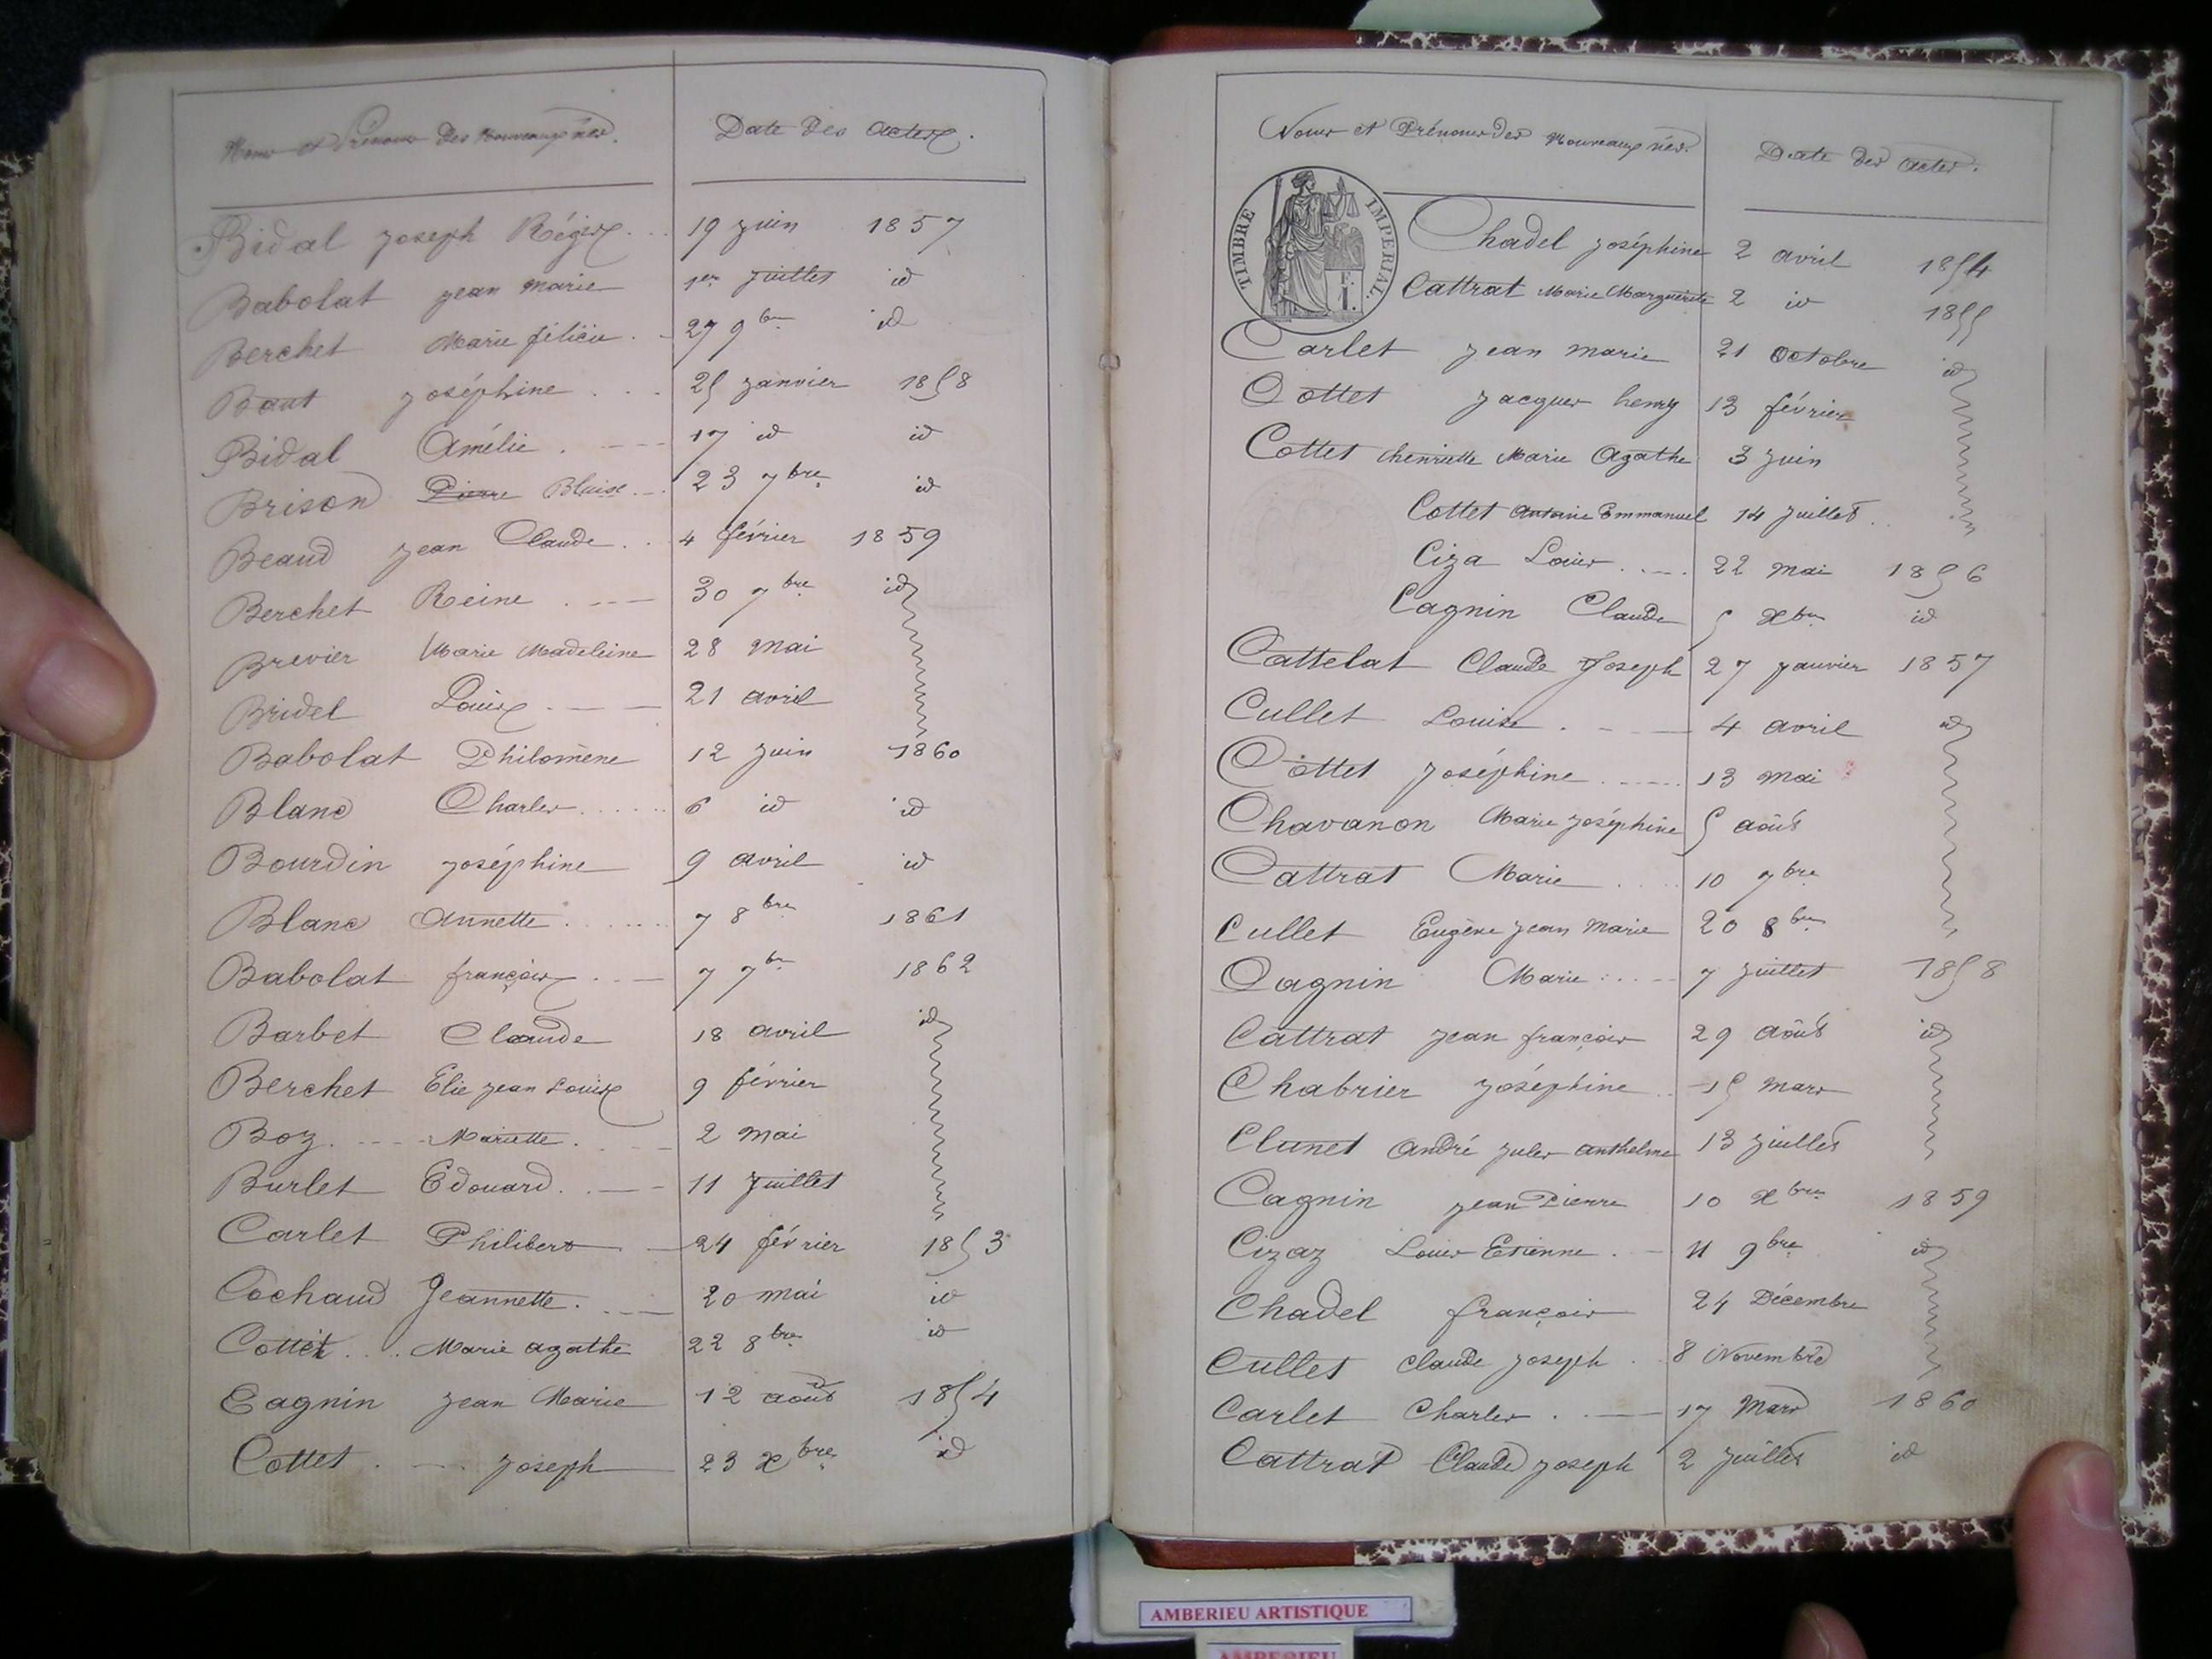 Noms et Prénoms des Nouveaux nés.
Date des actes.
Bidal Joseph Régis 19 juin 1857
Babolat jean marie 1er juillet id
Berchet Marie félicie 27 9bre id
Baut joséphine 25 janvier 1858
Bidal Amélie 17 id id
Brison Pierre Blaise 23 7bre id
Beaud jean Claude 4 février 1859
Berchet Reine 30 7bre id
Brevier Marie Madeleine 28 mai
Bridel Louis 21 avril
Babolat Philomène 12 juin 1860
Blanc Charles 6 id id
Bourdin joséphine 9 avril id
Blanc Annette 7 8bre 1861
Babolat françois 7 7bre 1862
Barbet Claude 18 avril id
Berchet Elie jean Louis 9 février
Boz Mariette 2 mai
Burlet Edouard 11 juillet
Carlet Philibert 24 février 1853
Cochaud Jeannette 20 mai id
Cottet Marie agathe 22 8bre id
Cagnin jean Marie 12 août 1854
Cottet joseph 23 xbre id
Noms et Prénoms des Nouveaux nés.
Date des actes.
TIMBRE IMPERIAL.
Chadel joséphine 2 avril 1854
Cattrat Marie Marguerite 2 id 1855
Carlet jean marie 21 octobre id
Cottet jacques henry 13 février
Cottet henriette Marie Agathe 3 juin
Cottet Antoine Emmanuel 14 juillet
Ciza Louis 22 mai 1856
Cagnin Claude 5 xbre id
Cattelat Claude Joseph 27 janvier 1857
Cullet Louise 4 avril id
Cottet joséphine 13 mai
Chavanon Marie joséphine 5 août
Cattrat Marie 10 7bre
Cullet Eugène jean Marie 20 8bre
Cagnin Marie 7 juillet 1858
Cattrat jean françois 29 août id
Chabrier joséphine 15 mars
Clunet André jules anthelme 13 juillet
Cagnin jean Pierre 10 xbre 1859
Cizaz Louis Etienne 11 9bre id
Chadel françois 24 Décembre
Cullet Claude joseph 8 Novembre
Carlet Charles 17 Mars 1860
Cattrat Claude joseph 2 juillet id
AMBERIEU ARTISTIQUE
AMBERIEU